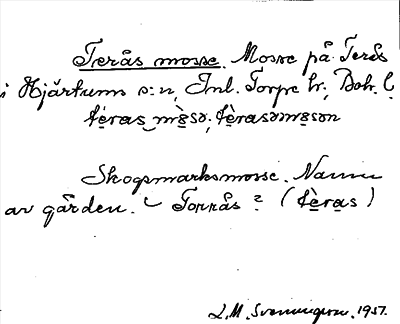 Terås mosse. Mosse på Terås
i Hjärtums s:n, Inl. Torpe hr, Boh. l.
tèras mo̱sə, tèrasəmo̱sən
Skogsmarksmosse. Namn
av gården. Torrås? (tèras)
L.M. Svenningson. 1957.